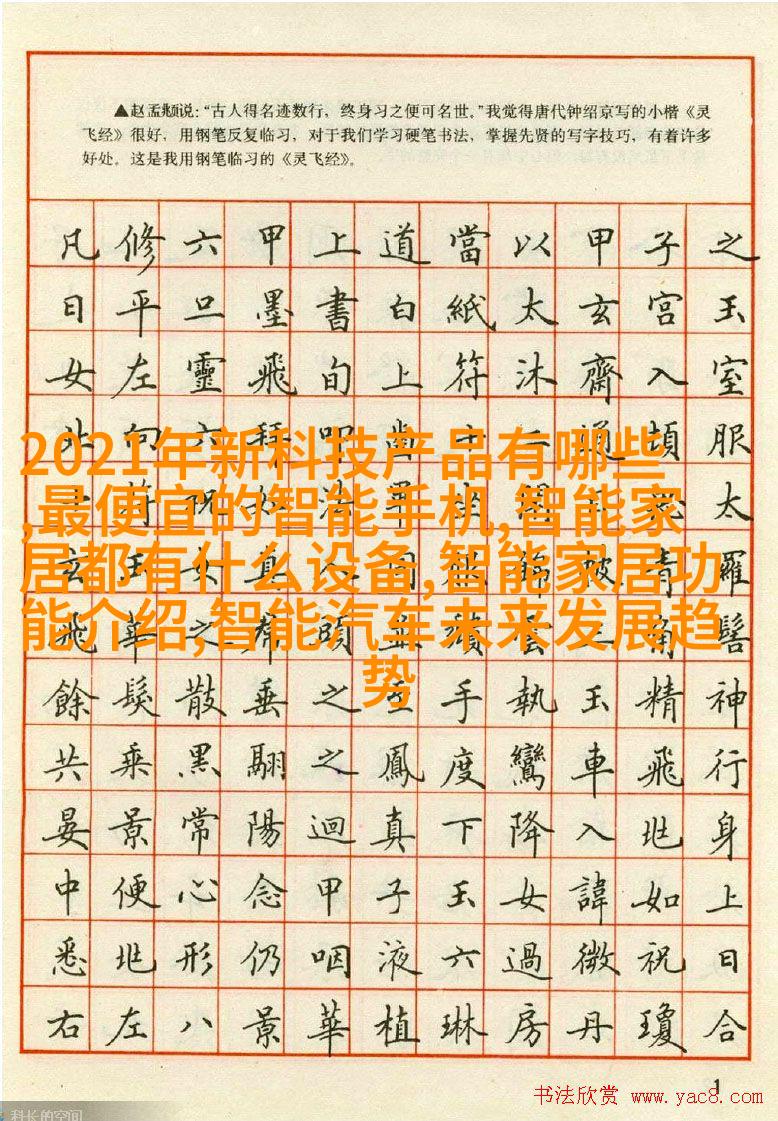 ▲赵孟頫说：“古人得名迹数行，终身习之便可名世。”我觉得唐代钟绍京写的小楷《灵
飞经》很好，用钢笔反复临习，对于我们学习硬笔书法，掌握先贤的写字技巧，有着许多
好处。这是我用钢笔临习的《灵飞经》。
凡修六甲上道當以甲子之
日平旦墨書白紙太玄宮玉
女左靈飛旬上符沐齋入室
北向六拜叩齒十二通頓服
符祝如法畢坐太
玄玉女真人同服飾被青羅
飛華之帬頭並頹雲三角髻
餘髮散垂之至手執玉精神
共乘黑翮之鳳度鸞車飛行
晏景常陽迴真下降入兆身
中便心念甲子玉女諱如上
悉兆形仍咽液六過微祝曰
右左八景華植琳房丹瓊合
2021年新科技产品有哪些
,最便宜的智能手机,智能家
居都有什么设备,智能家居功
能介绍,智能汽车未来发展趋
势
1
书法欣赏 www.yac8.com
科长的空间